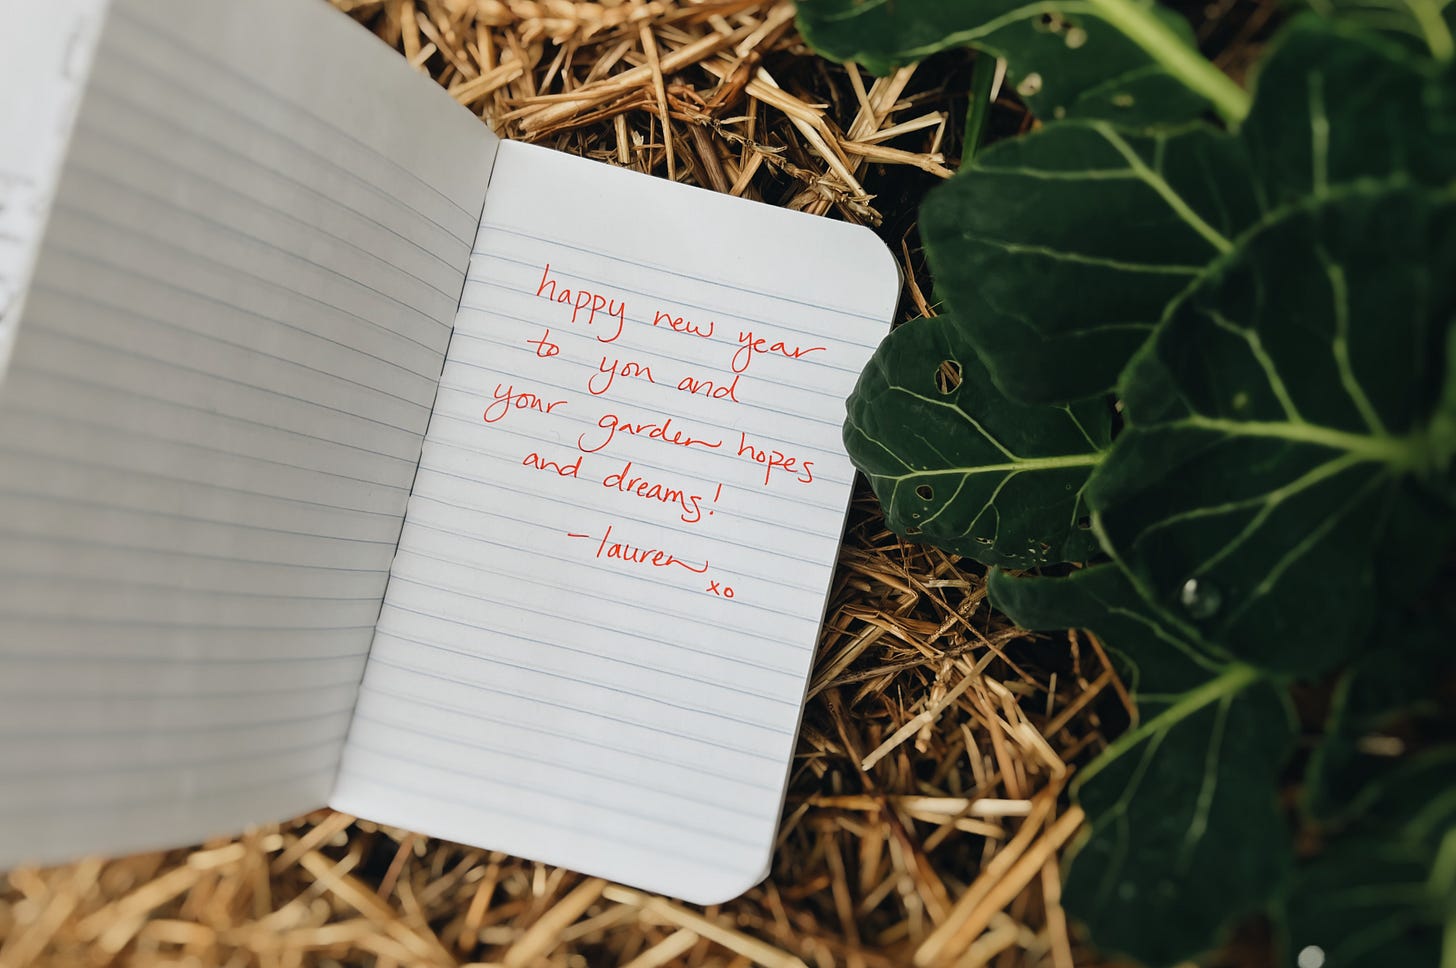 happy new year
to you and
your garden hopes
and dreams!
-lauren
xo